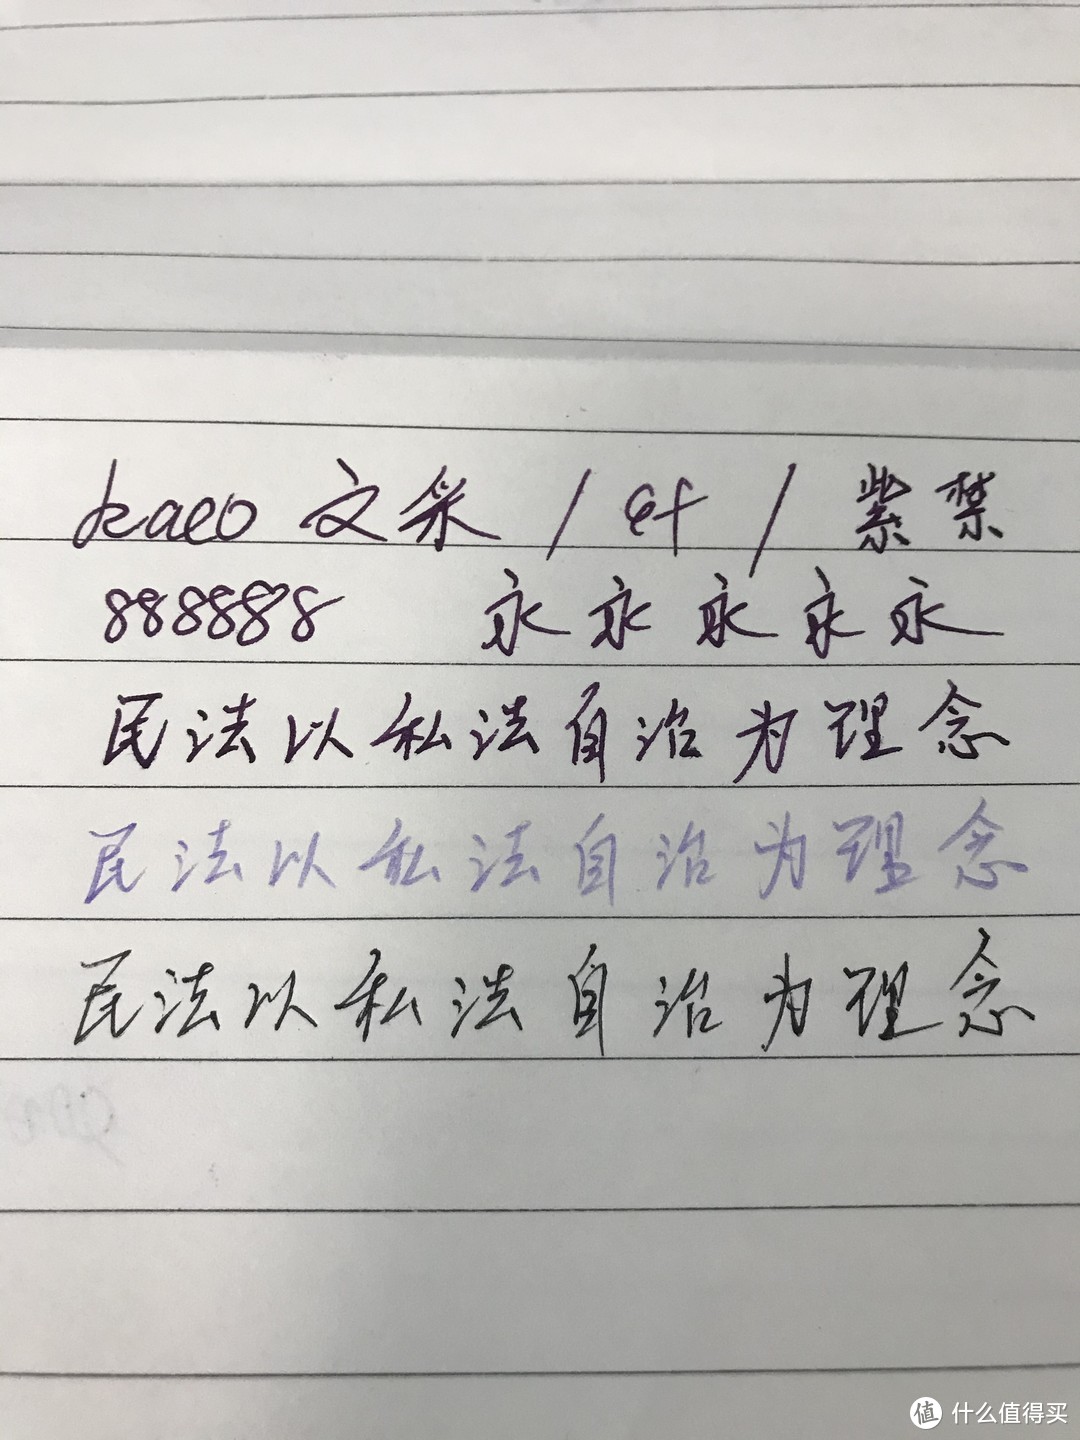 kaco 文采 / ef / 紫禁
888888 永永永永永
民法以私法自治为理念
民法以私法自治为理念
民法以私法自治为理念
值 什么值得买